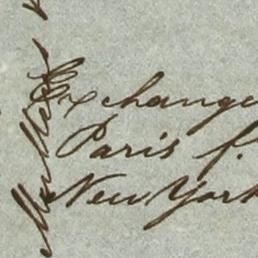 Exchange
Paris f.
New York